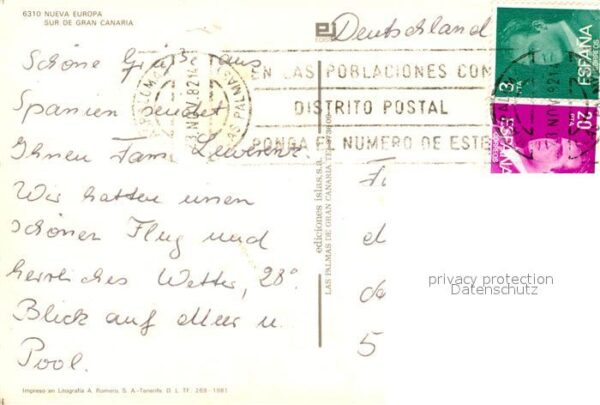 6310 NUEVA EUROPA
SUR DE GRAN CANARIA
Deutschland
Schöne Grüße aus
Spanien sendet
Ihnen Fam. Leverenz.
Wir hatten einen
schönen Flug und
herrliches Wetter, 28°
Blick auf Meer u.
Pool.
EN LAS POBLACIONES CON
DISTRITO POSTAL
PONGA EL NUMERO DE ESTE
LAS PALMAS
NOV. 82
ESPAÑA
3
PTA
CORREOS
ESPAÑA
20
PTA
CORREOS
ediciones islas, s.a.
LAS PALMAS DE GRAN CANARIA
5
privacy protection
Datenschutz
Impreso en Litografía A. Romero, S. A.-Tenerife. D. L. TF. 269 - 1981